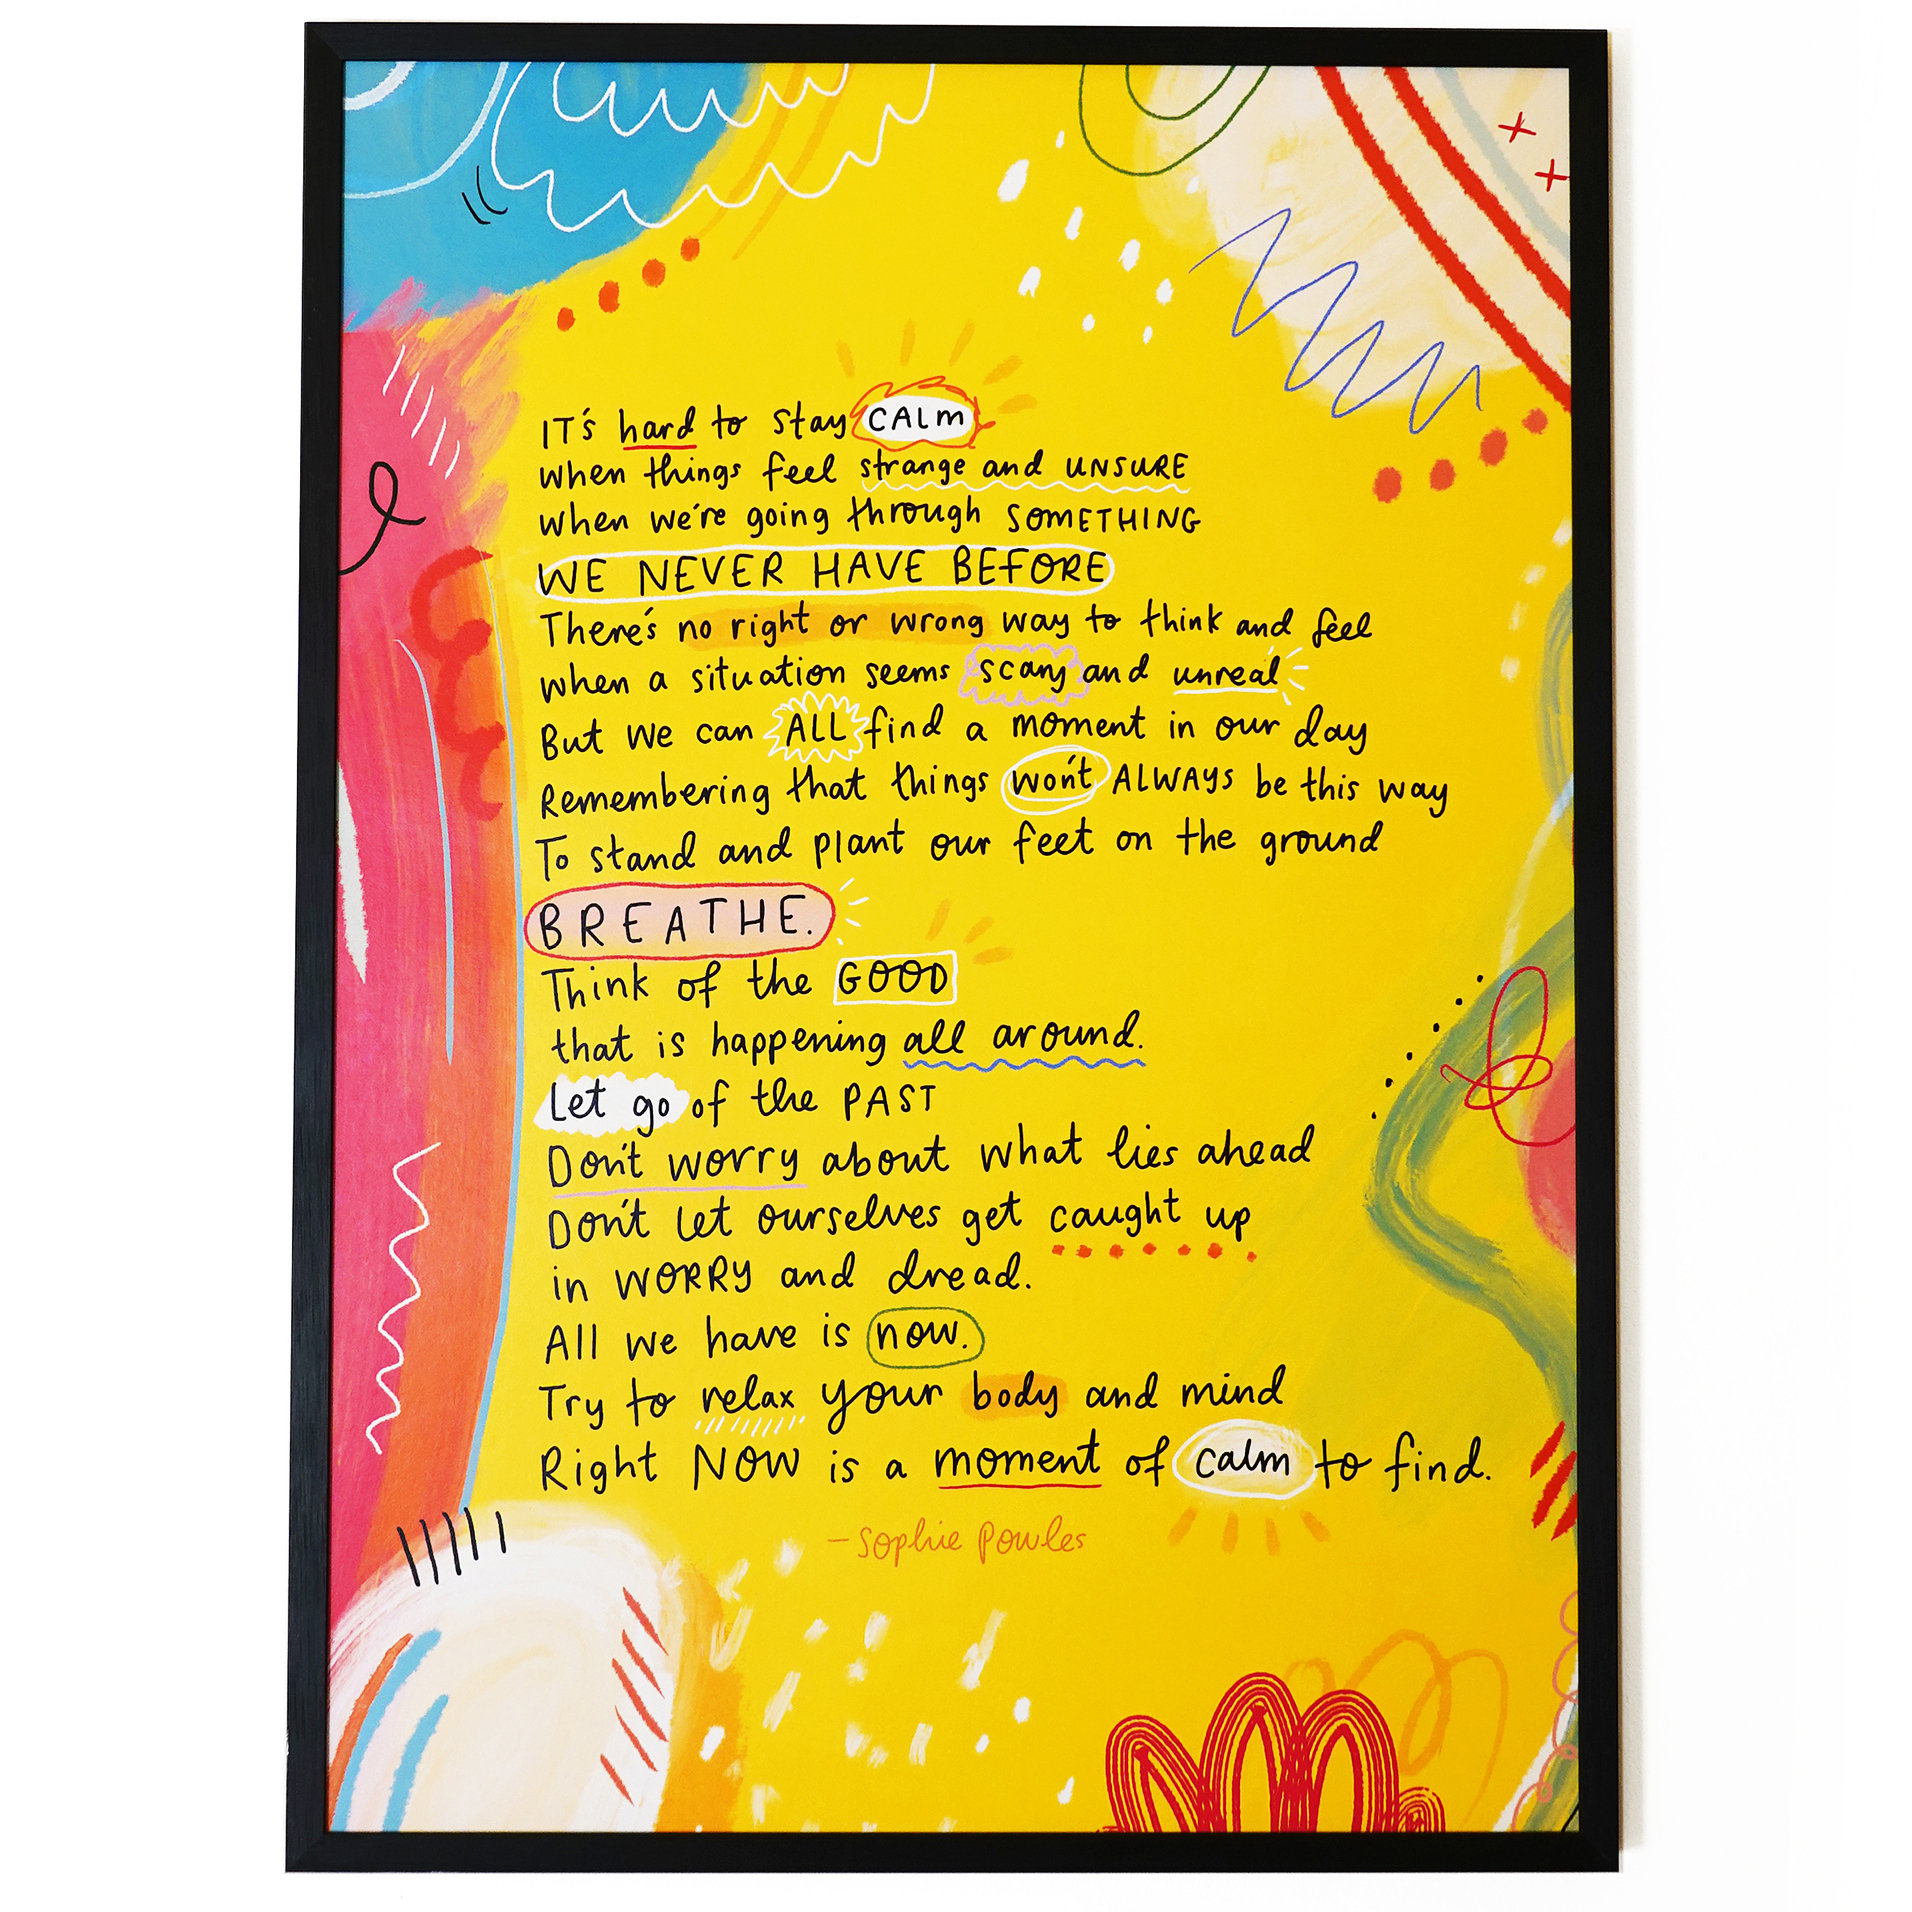 IT's hard to stay CALM
when things feel strange and UNSURE
when we're going through SOMETHING
WE NEVER HAVE BEFORE
There's no right or wrong way to think and feel
when a situation seems scary and unreal
But we can ALL find a moment in our day
Remembering that things won't ALWAYS be this way
To stand and plant our feet on the ground
BREATHE.
Think of the GOOD
that is happening all around.
Let go of the PAST
Don't worry about what lies ahead
Don't let ourselves get caught up
in WORRY and dread.
All we have is now.
Try to relax your body and mind
Right NOW is a moment of calm to find.
- Sophie Powles